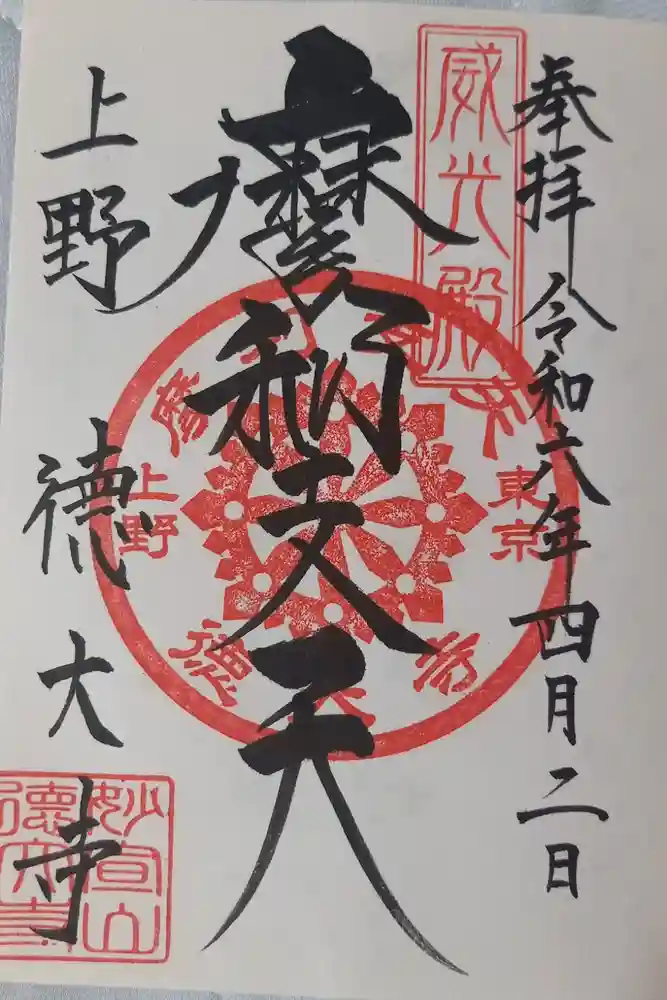 奉拝 令和六年四月二日
威光殿
摩利支天
上野 徳大寺
摩利支天
東京
上野
徳大寺
妙宣山